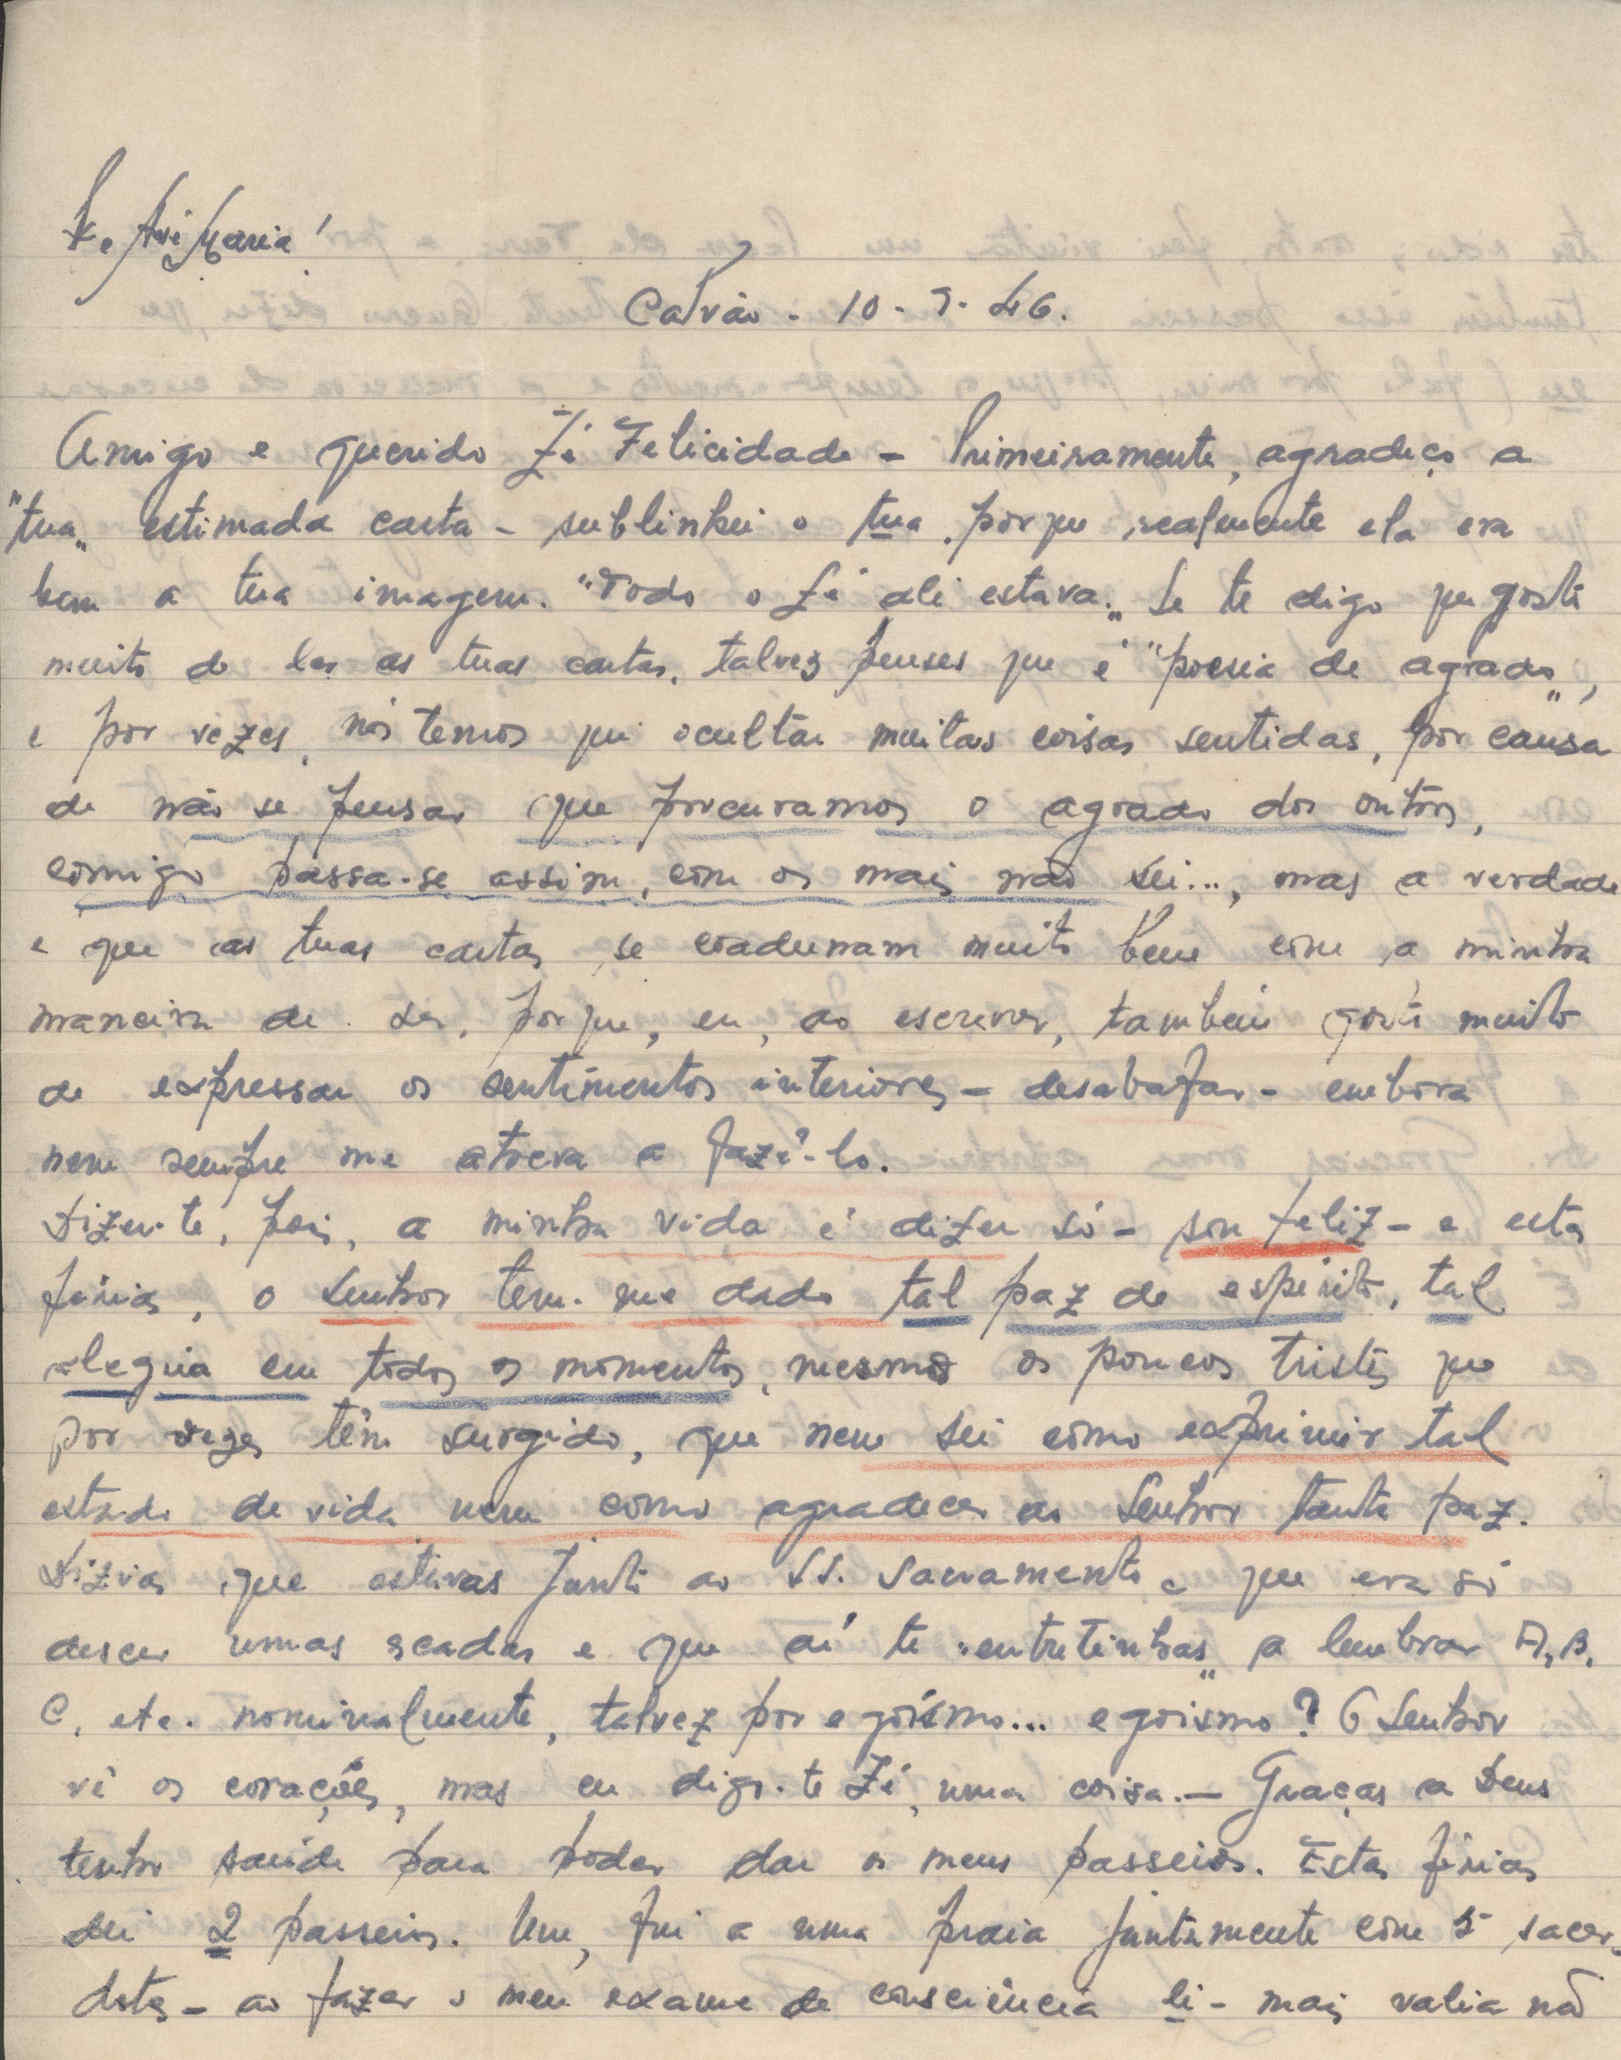 Ave Maria!
Calvão - 10 - 9 - 46.
Amigo e querido Zé Felicidade - Primeiramente, agradeço a
"tua" estimada carta - sublinhei o tua, porque realmente ela era
bem a tua imagem. "Todo o Zé ali estava." Se te digo que gosto
muito de ler as tuas cartas, talvez penses que é "poesia de agrado",
e por vezes, nós temos que ocultar muitas coisas sentidas, por causa
de não se pensar que procuramos o agrado dos outros,
comigo passa-se assim, com os mais não sei..., mas a verdade
é que as tuas cartas se coadunam muito bem com a minha
maneira de ser, porque, eu, ao escrever, também gosto muito
de expressar os sentimentos interiores - desabafar - embora
nem sempre me atreva a fazê-lo.
Dizer-te, pois, a minha vida é dizer só - sou feliz - e estas
férias, o Senhor tem-me dado tal paz de espírito, tal
alegria em todos os momentos, mesmo os poucos tristes que
por vezes têm surgido, que nem sei como exprimir tal
estado de vida nem como agradecer ao Senhor tanta paz.
Dizias que estavas junto ao SS. Sacramento e que era só
descer umas scadas e que aí te "entretinhas" a lembrar A, B,
C, etc. nominalmente, talvez por egoísmo... egoismo? O Senhor
vê os corações, mas eu digo-te Zé, uma coisa. - Graças a Deus
tenho saúde para poder dar os meus passeios. Estas férias
dei 2 passeios. Um, fui a uma praia juntamente com 5 sacer-
dotes - ao fazer o meu exame de consciência li - mais valia não